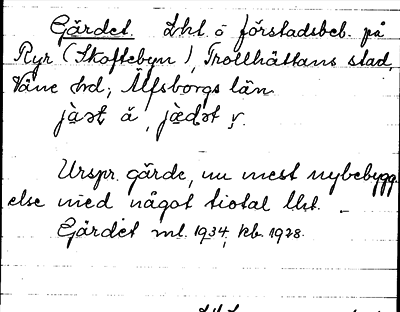 Gärdet. Lht. o förstadsbeb. på
Ryr (Skoftebyn), Trollhättans stad,
Väne hd, Älfsborgs län
jàət ä, jæ̀dət y.
Urspr. gärde, nu mest nybebygg
else med något tiotal lht.
Gärdet ml. 1934, kb. 1928.